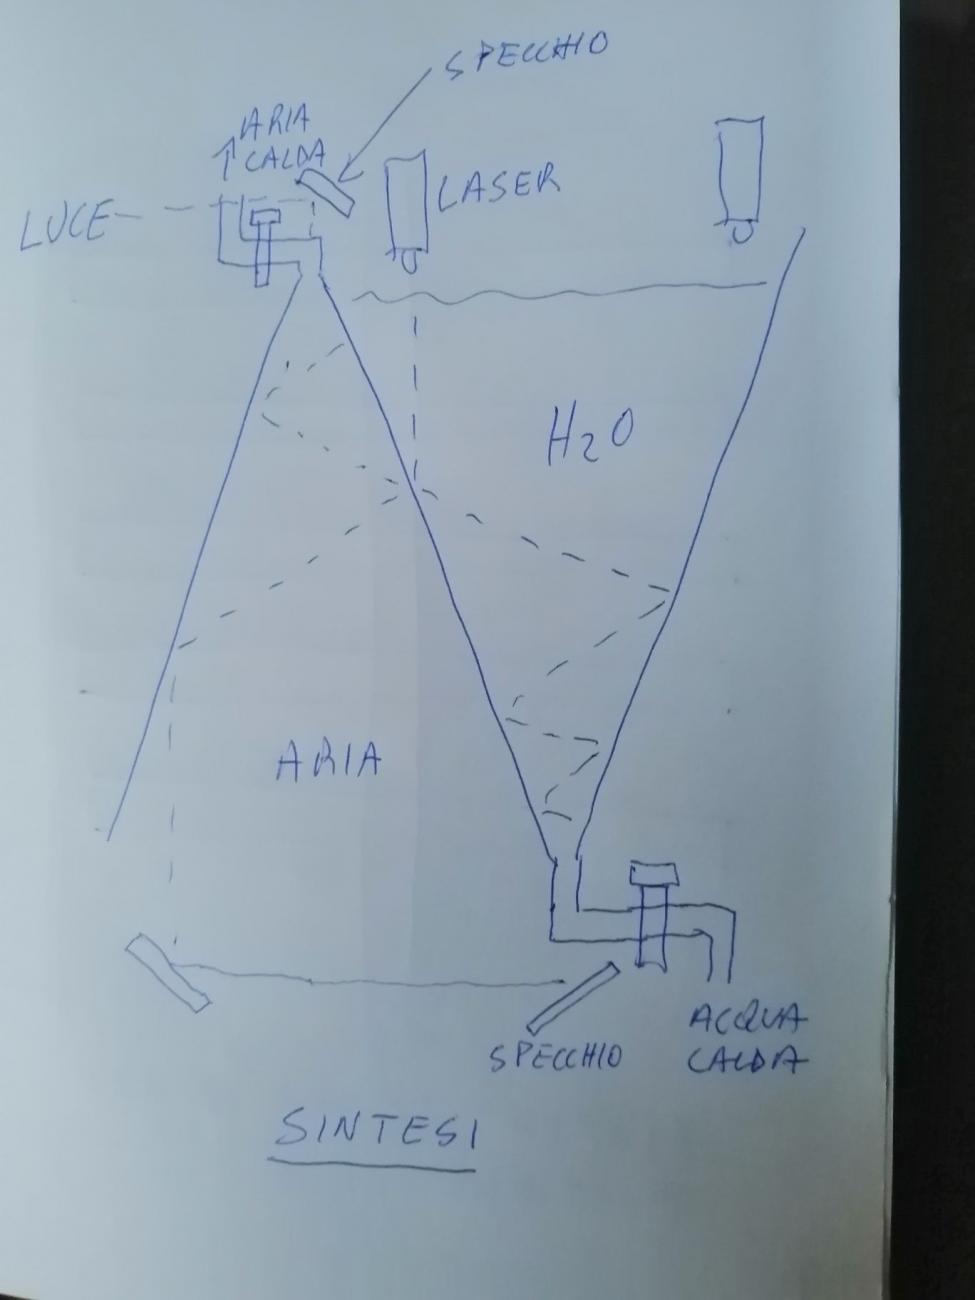 SPECCHIO
ARIA
CALDA
LASER
LUCE
H2O
ARIA
ACQUA
CALDA
SPECCHIO
SINTESI